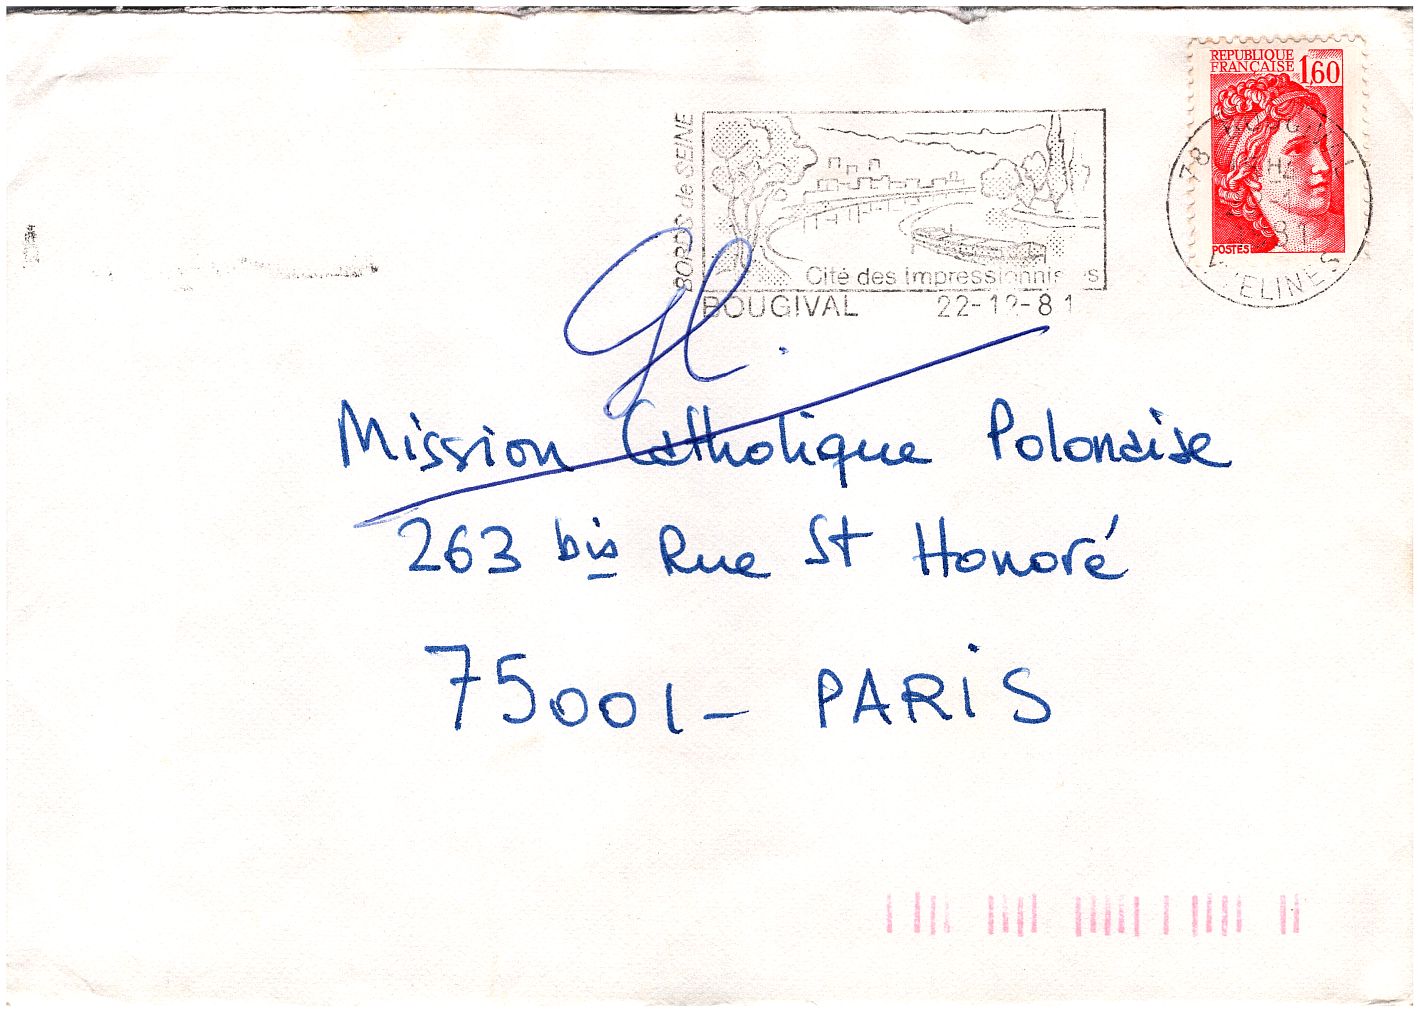 REPUBLIQUE
FRANÇAISE 1,60
POSTES
78 BOUGIVAL
YVELINES
BORDS de SEINE
Cité des Impressionnistes
BOUGIVAL 22-12-81
Mission Catholique Polonaise
263 bis Rue St Honoré
75001- PARIS